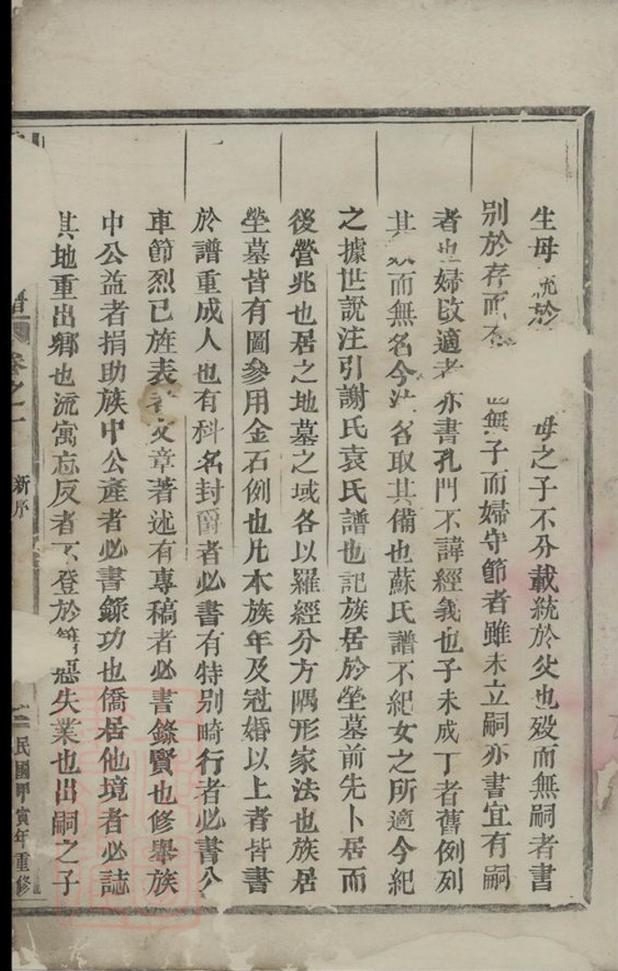 生母統於 母之子不分載統於父也歿而無嗣者書
別於存而 無子而婦守節者雖未立嗣亦書宜有嗣
者也婦改適者亦書孔門不諱經義也子未成丁者舊例列
其 而無名今 名取其備也蘇氏譜不紀女之所適今紀
之據世說注引謝氏袁氏譜也記族居於塋墓前先卜居而
後營兆也居之地墓之域各以羅經分方隅形家法也族居
塋墓皆有圖參用金石例也凡本族年及冠婚以上者皆書
於譜重成人也有科名封爵者必書有特別畸行者必書公
車節烈已旌表者文章著述有專稿者必書錄賢也修舉族
中公益者捐助族中公產者必書錄功也僑居他境者必誌
其地重出鄉也流寓忘反者不登於 惡失業也出嗣之子
譜 卷之一 新序 二 民國甲寅年重修